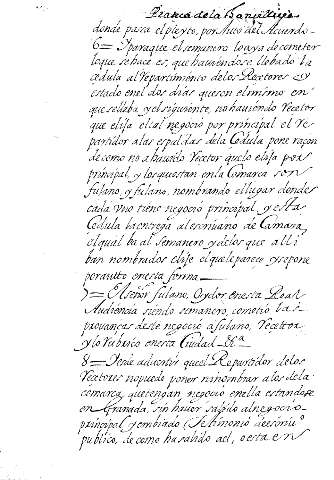 Practica de la Chancilleria
donde passa el pleyto, por Auto del Acuerdo.
6= Y para que el semanero lo aya de cometer
lo que se hace es, que haviendose llebado la
cedula al repartimiento de los Rectores y
estado en el dos dias que son el mismo en
que se lleba, y el siguiente, no haviendo Recetor
que elija el tal negocio por principal el Re-
partidor a las espaldas de la Cedula pone raçon
de como no a havido Recetor que lo elija por
principal, y los que estan en la Comarca son
fulano, y fulano, nombrando el lugar donde
cada uno tiene negocio principal y esta
Cedula la entrega al escriuano de Camara,
el qual ba al semanero y de los que alli
ban nombrados elije el que le parece y se pone
por auto en esta forma
7= El señor fulano, Oydor en esta Real
Audiencia siendo semanero, cometio las
provanças de este negocio a fulano, Recetor
y lo rubrico en esta Ciudad &a
8= Y se advierte que el Repartidor de los
Recetores no puede poner ni nombrar a los de la
comarca que tengan negocio en ella estandose
en Granada, sin haver salido al negocio
principal y embiado testimonio de escriuo
publico, de como ha salido a el, o esta en